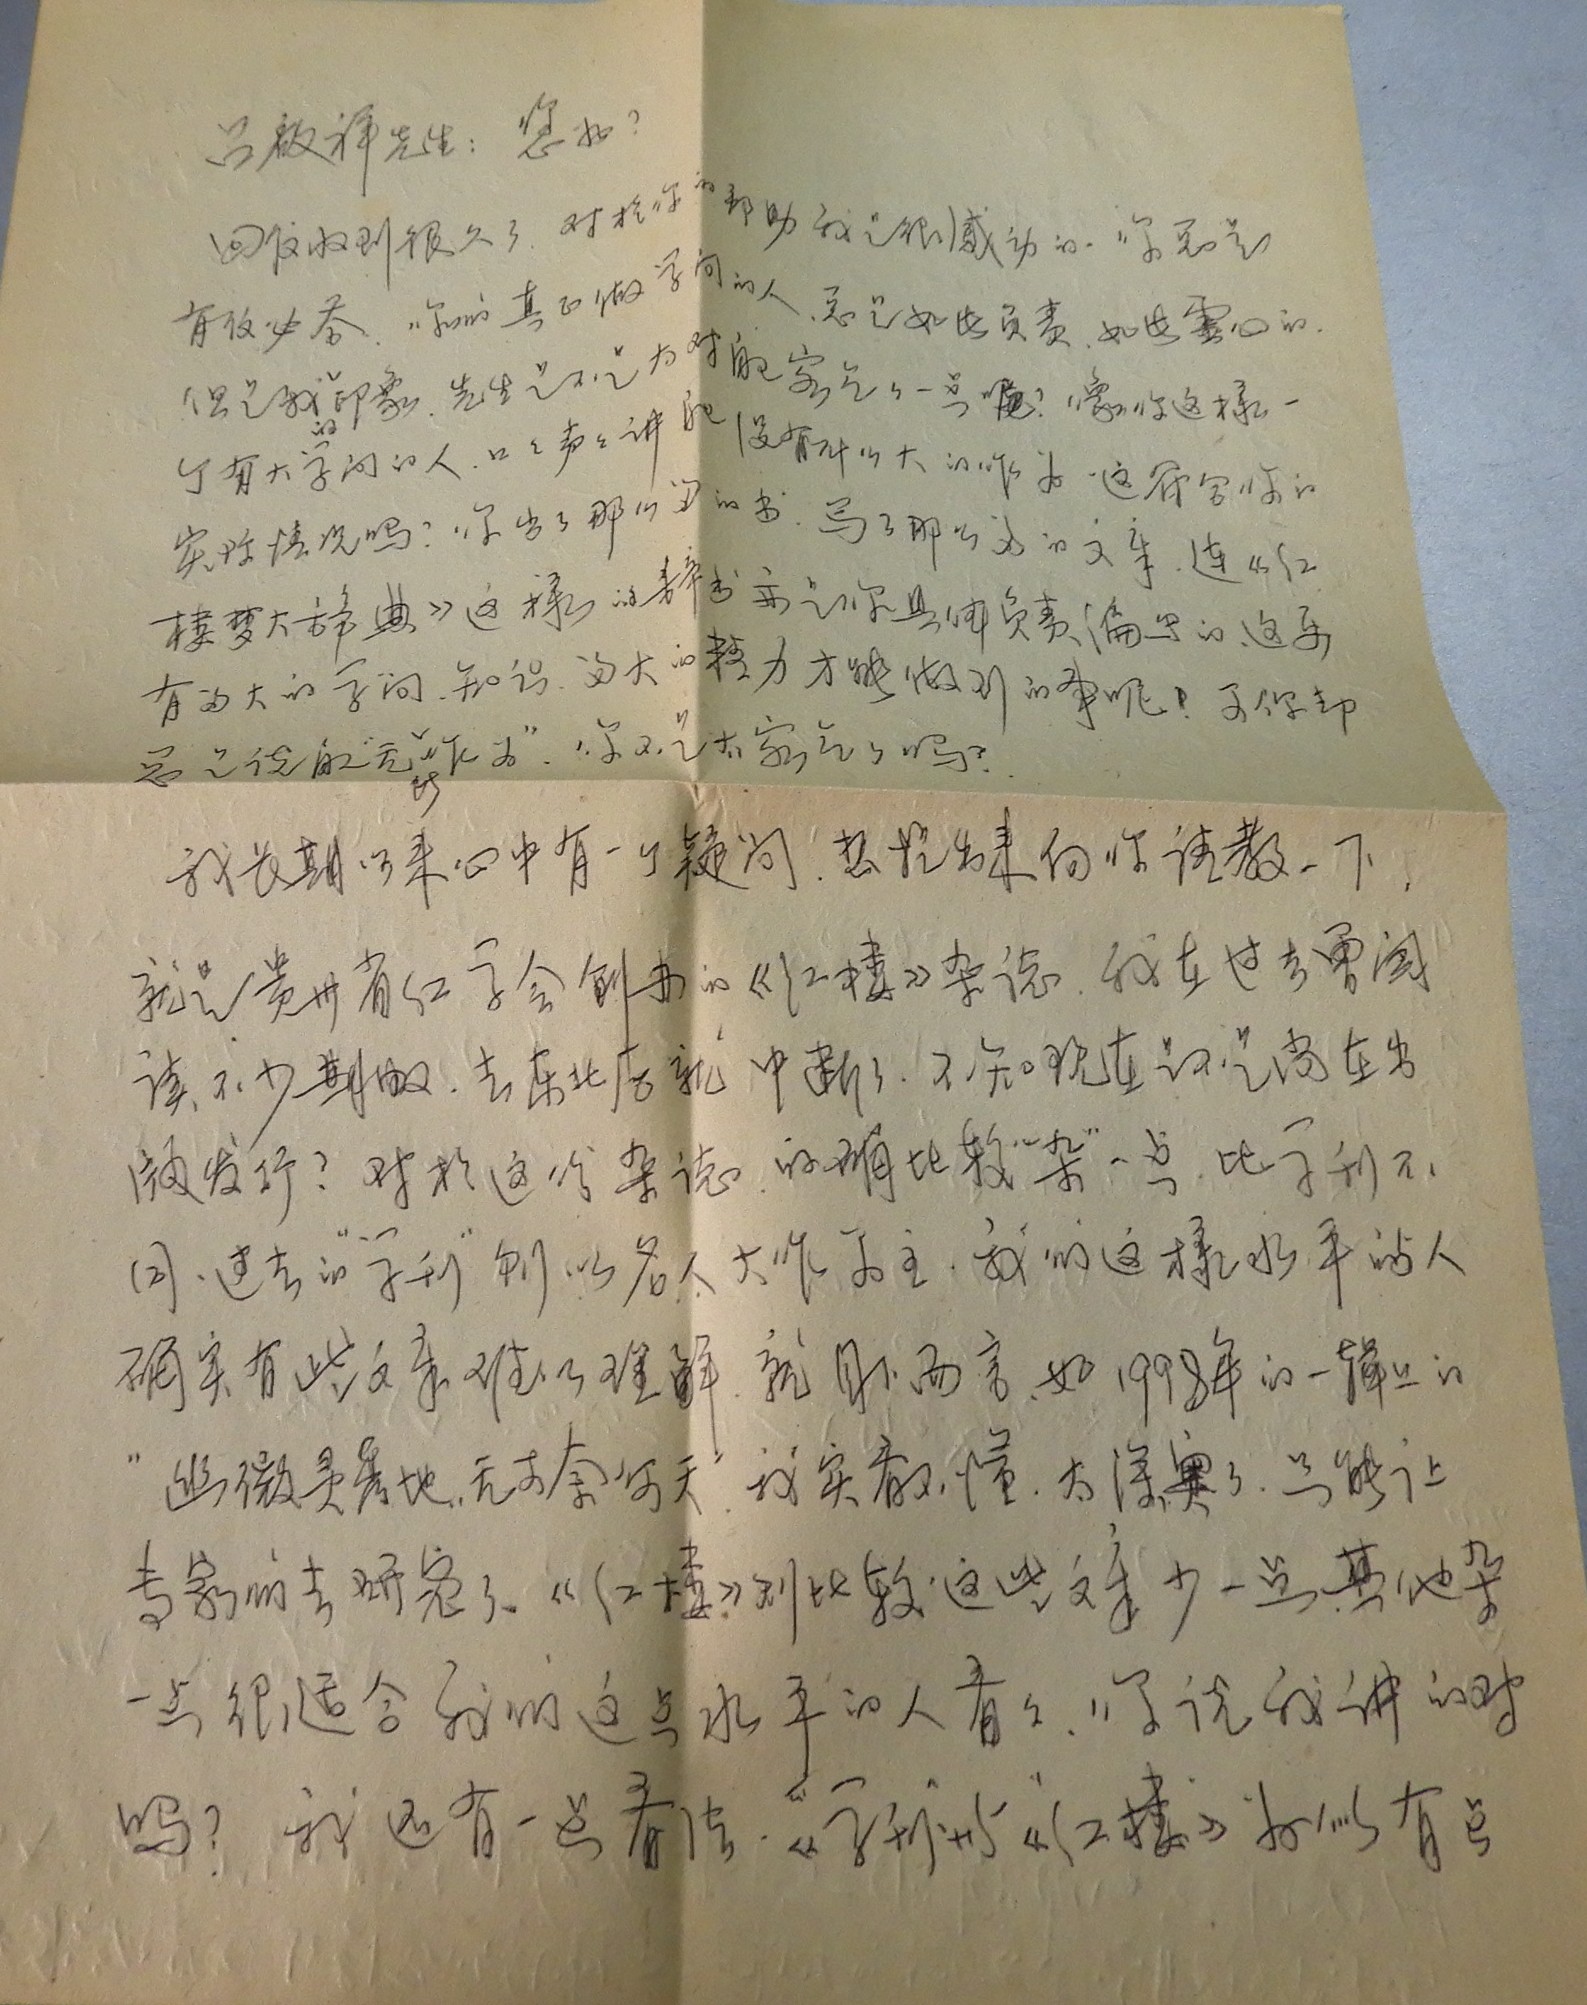 吕啟祥先生：您好？
回信收到很久了、对於你的帮助我是很感动的、你总是
有信必答、你们真正做学问的人、总是如此负责、如此虚心的、
但是我的印象、先生是不是太对自己客气了一点呢？像你这样一
个有大学问的人、口々声々讲自己没有什么大的作为、这符合你的
实际情况吗？你出了那么多的书、写了那么多的文章、连《红
楼梦大辞典》这样的辞书亦是你具体负责编写的、这要
有多大的学问、知识、多大的精力才能做到的事呢！可你却
总是说自己“无所作为”、你不是太客气了吗？
我长期以来心中有一个疑问、想提出来向你请教一下、
就是贵州省红学会创办的《红楼》杂志、我在过去曾阅
读不少期数、去东北后就中断了、不知现在是不是尚在出
版发行？对於这份杂志、的确比较“杂”一点、比学刊不
同、过去的“学刊”则以名人大作为主、我们这样水平的人
确实有些文章难以理解、就目下而言、如1998年的一辑上的
“幽微灵秀地、无可奈何天”、我实看不懂、太深奥了、只能让
专家们去研究了、《红楼》则比较这些文章少一点、其他杂
一点、很适合我们这点水平的人看看、你说我讲的对
吗？我还有一点看法、《“学刊”》与《红楼》好似有点